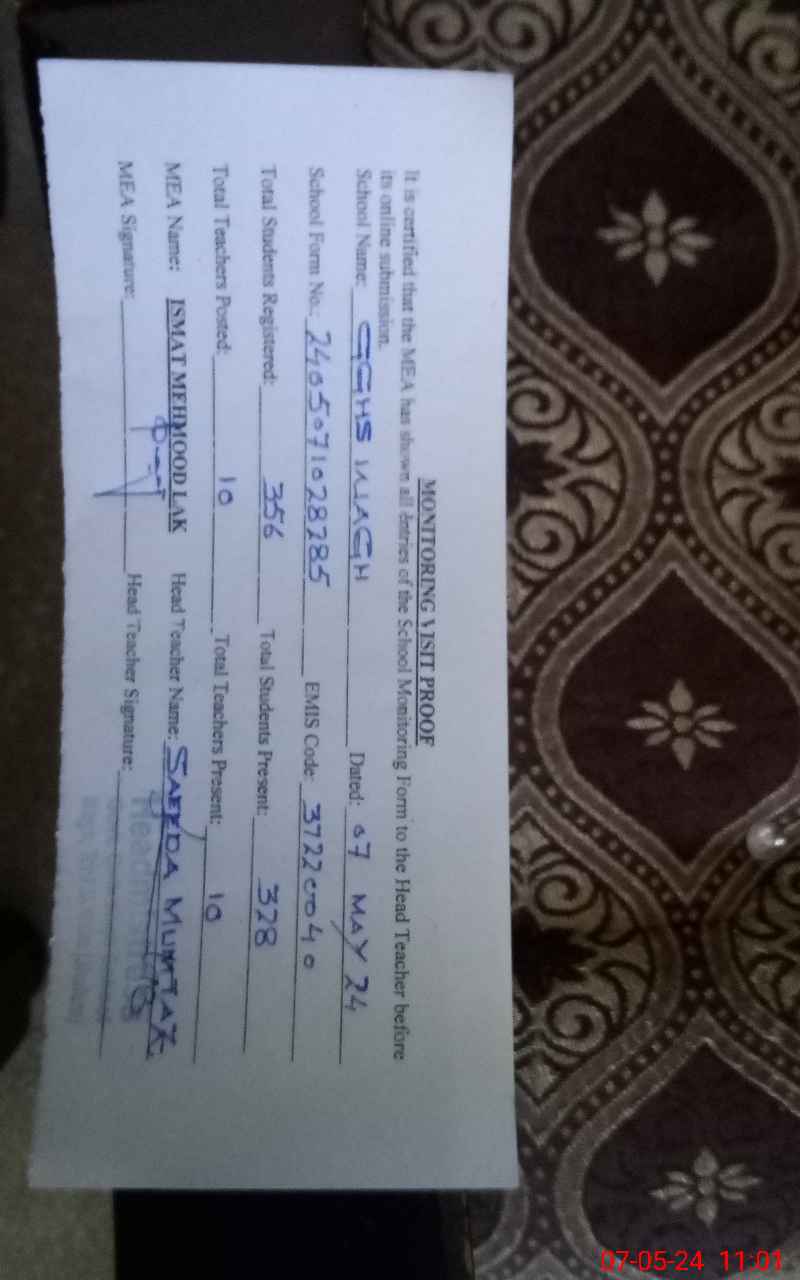 MONITORING VISIT PROOF
It is certified that the MEA has shown all entries of the School Monitoring Form to the Head Teacher before
its online submission.
School Name: GGHS WAGH Dated: 07 MAY 24
School Form No.: 2405071028285 EMIS Code: 37220040
Total Students Registered: 356 Total Students Present: 328
Total Teachers Posted: 10 Total Teachers Present: 10
MEA Name: ISMAT MEHMOOD LAK Head Teacher Name: SAEEDA MUMTAZ
MEA Signature: Head Teacher Signature:
07-05-24 11:01